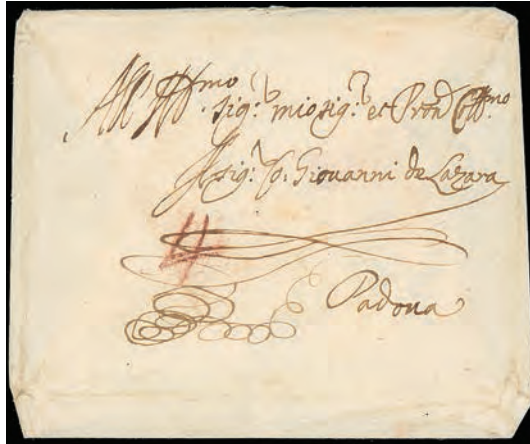 All' Ill.mo
sig.r mio sig.r et Pron Coll.mo
Il sig.r Co. Giovanni de Lazara
4
Padova